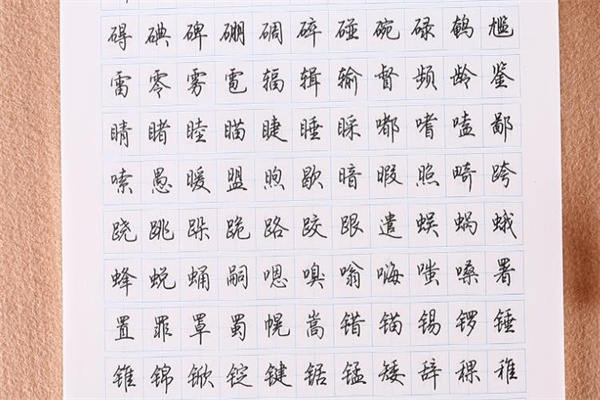 碍碘碑硼碉碎碰碗碌鹌尴
雷零雾雹辐辑输督频龄鉴
睛睹睦瞄睫睡睬嘟嗜嗑鄙
嗦愚暖盟煦歇暗暇照畸跨
跷跳跺跪路跤跟遣蜈蜗蛾
蜂蜕蛹嗣嗯嗅嗡嗨嗤嗓署
置罪罩蜀幌嵩错锚锡锣锤
锥锦锨锭键锯锰矮辞稞稚